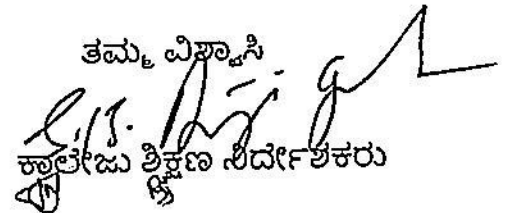 ತಮ್ಮ ವಿಶ್ವಾಸಿ
ಕಾಲೇಜು ಶಿಕ್ಷಣ ನಿರ್ದೇಶಕರು